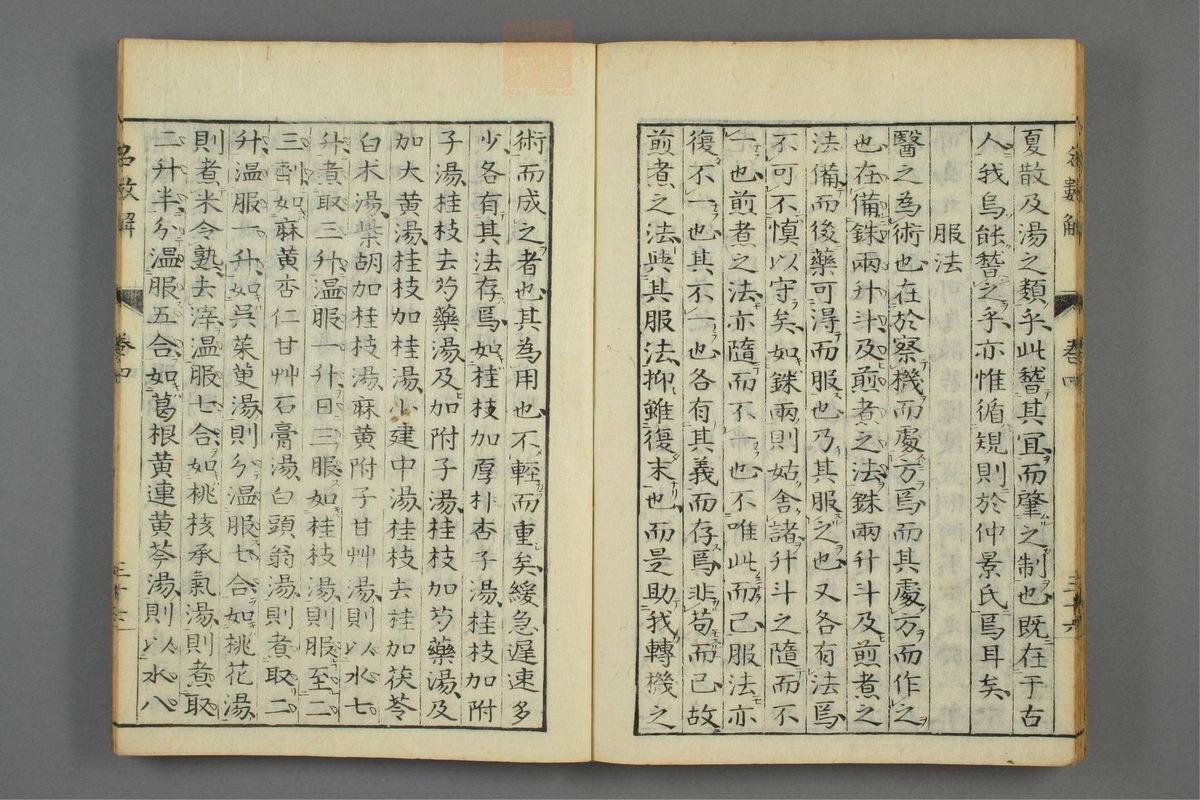 夏散及湯之類乎此瞀其宜而肇之制也既在于古
人我烏能瞀之乎亦惟循規則於仲景氏焉耳矣
服法
醫之為術也在於察機而處方焉而其處方而作之
也在備銖兩升斗及煎煮之法銖兩升斗及煎煮之
法備而後藥可得而服也乃其服之也又各有法焉
不可不慎以守矣如銖兩則姑舍諸升斗之隨而不
一也煎煮之法亦隨而不一也不唯此而已服法亦
復不一也其不一也各有其義而存焉非苟而已故
煎煮之法與其服法抑雖復末也而是助我轉機之
術而成之者也其為用也不輕而重矣緩急遲速多
少各有其法存焉如桂枝加厚朴杏子湯桂枝加附
子湯桂枝去芍藥湯及加附子湯桂枝加芍藥湯及
加大黄湯桂枝加桂湯小建中湯桂枝去桂加茯苓
白朮湯柴胡加桂枝湯麻黄附子甘艸湯則以水七
升煮取三升温服一升日三服如桂枝湯則服至二
三劑如麻黄杏仁甘艸石膏湯白頭翁湯則煮取二
升温服一升如呉茱萸湯則分温服七合如桃花湯
則煮米令熟去滓温服七合如桃核承氣湯則煮取
二升半分温服五合如葛根黄連黄芩湯則以水八
卷四